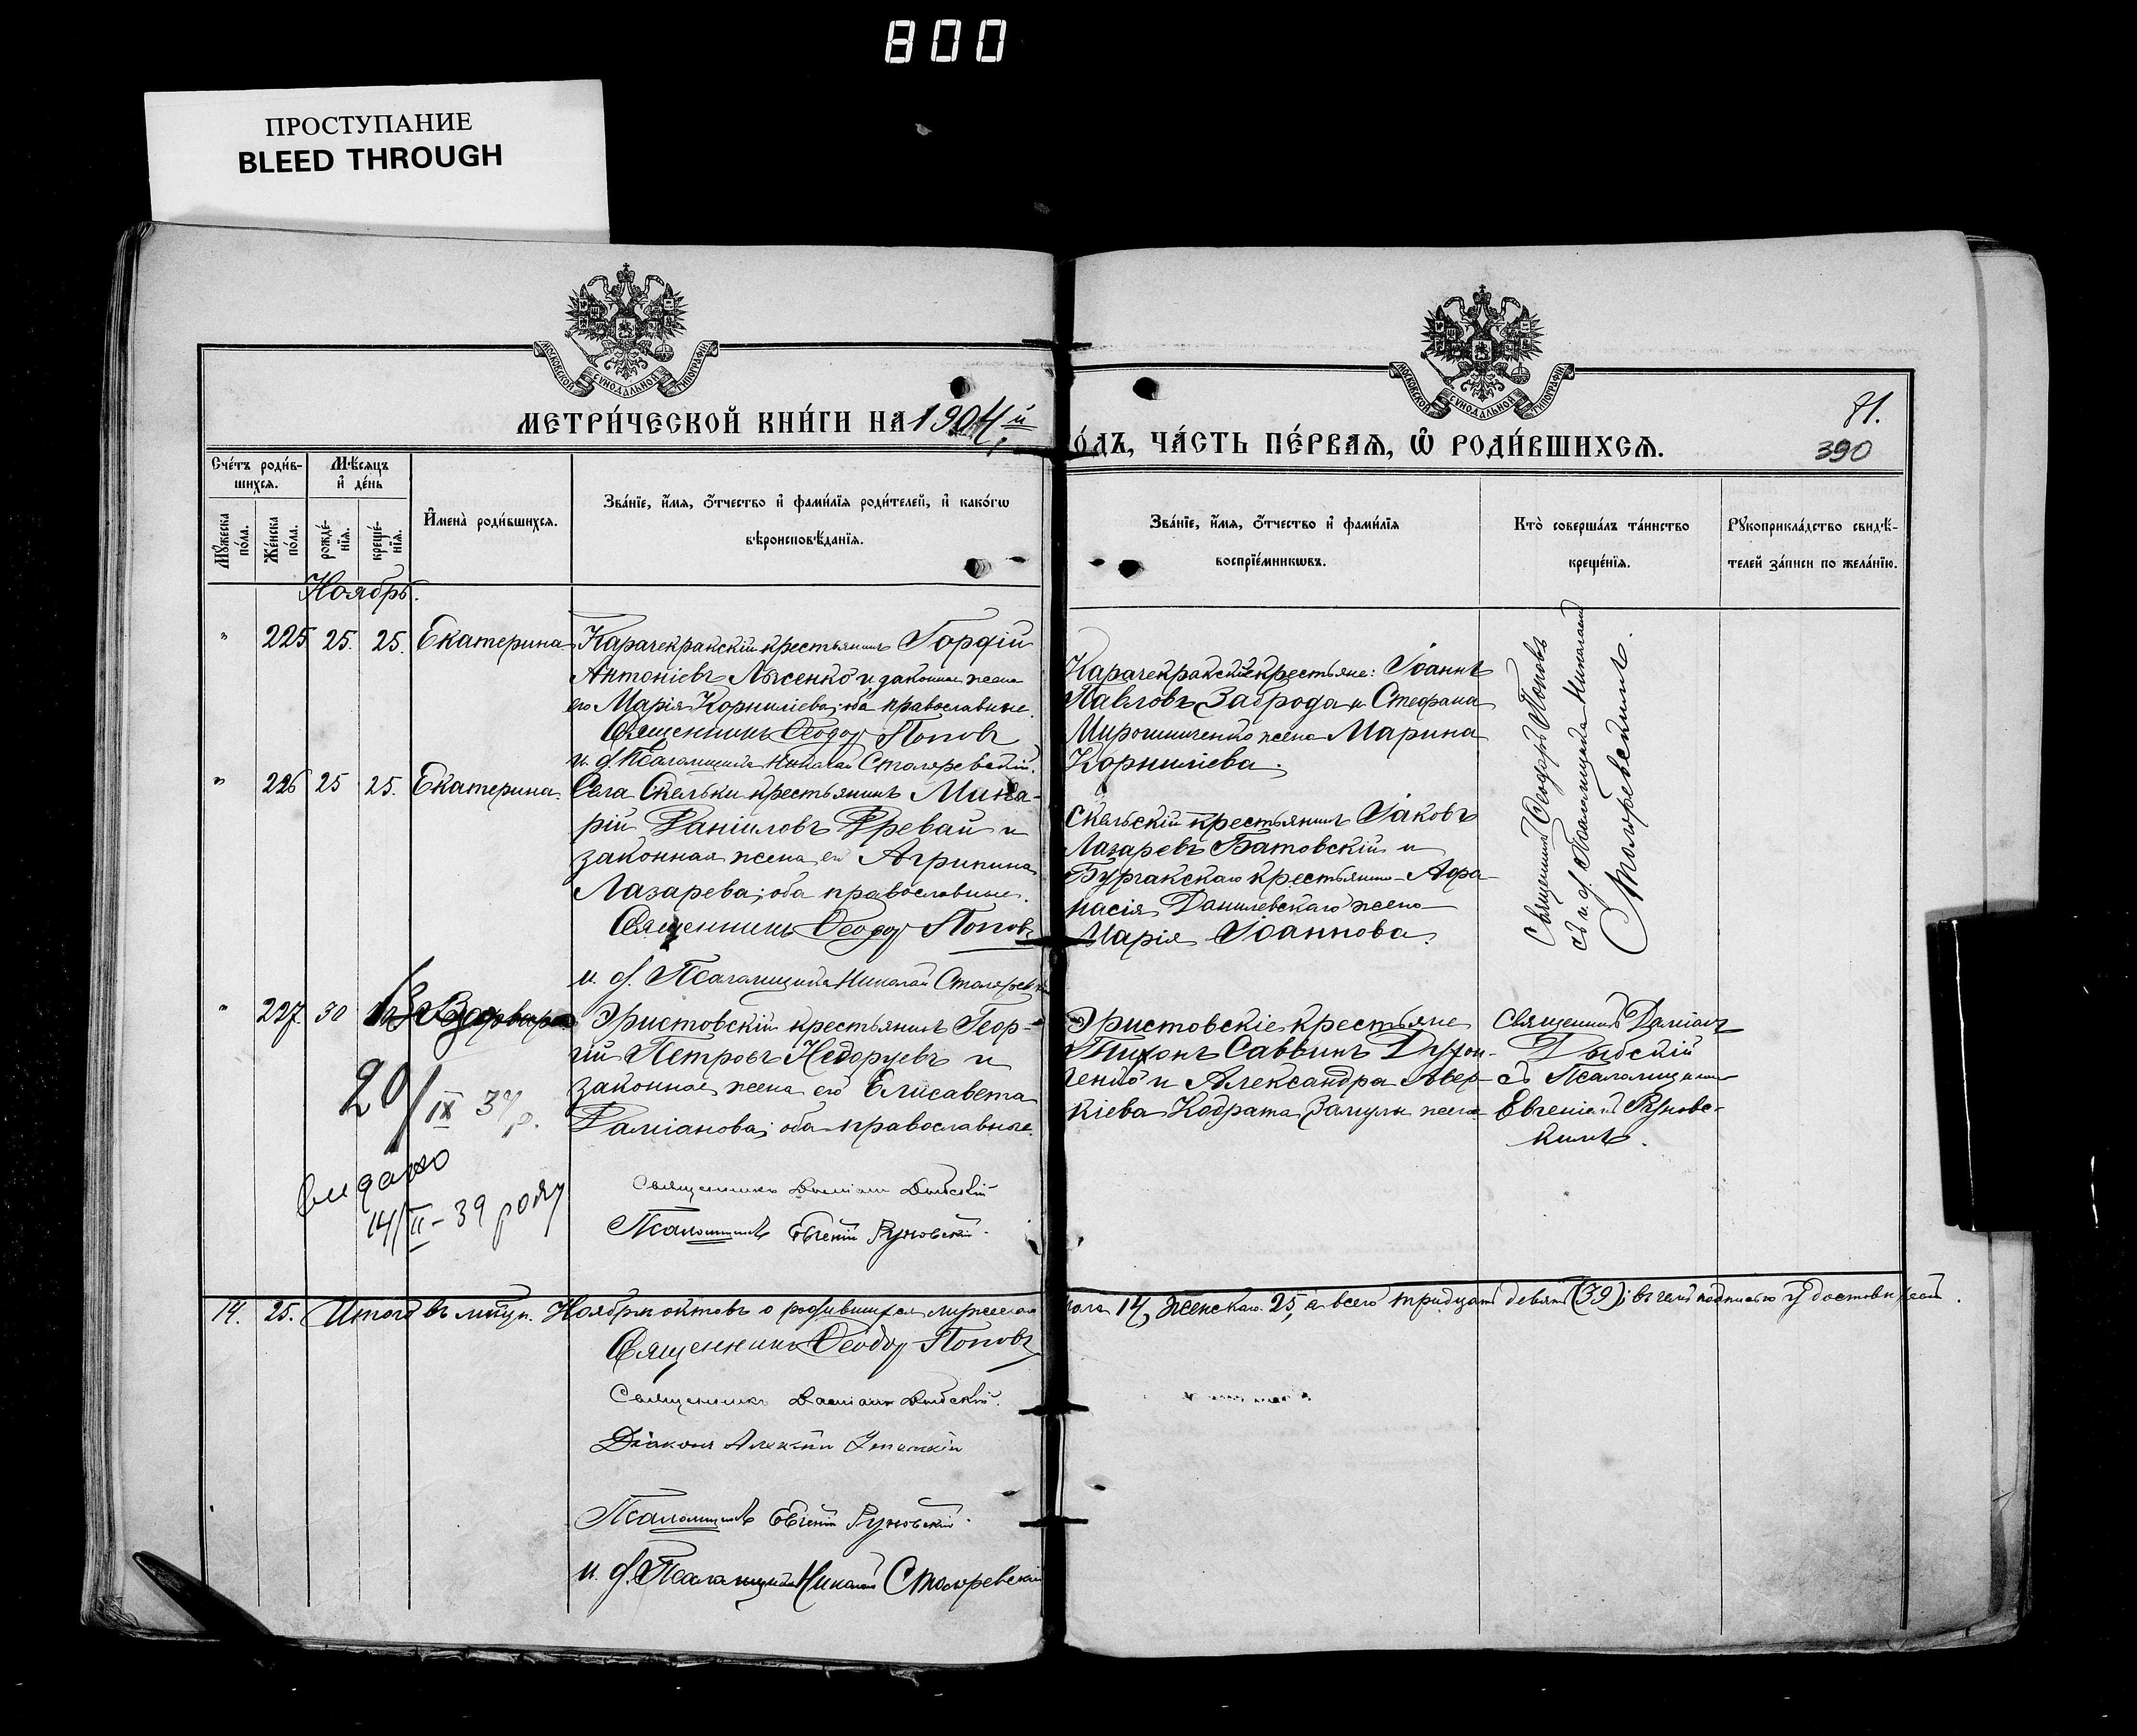 800
ПРОСТУПАНИЕ
BLEED THROUGH
МОСКОВСКОЙ СѴНОДАЛЬНОЙ ТИПОГРАФІИ
МОСКОВСКОЙ СѴНОДАЛЬНОЙ ТИПОГРАФІИ
МЕТРИ́ЧЕСКОЙ КНИ́ГИ НА 1904 й
О́ДЪ, ЧА́СТЬ ПЕ́РВАѦ, Ѽ РОДИ́ВШИХСѦ.
81.
390
Сче́тъ роди́в-
шихсѧ.
Мѣ́сяцъ
и҆ де́нь
Мꙋ́жеска по́ла.
Же́нска по́ла.
рожде́-
нїѧ.
креще́-
нїѧ.
И҆мена̀ роди́вшихсѧ.
Зва́нїе, и҆́мѧ, ѻ҆́тчество и҆ фами́лїѧ роди́телей, и҆ како́гѡ
вѣроисповѣ́данїѧ.
Зва́нїе, и҆́мѧ, ѻ҆́тчество и҆ фами́лїѧ
воспрїе́мникѡвъ.
Кто̀ соверша́лъ та́инство
креще́нїѧ.
Рꙋкоприкла́дство свидѣ́-
телей за́писи по жела́нїю.
Ноябрь.
" 225 25. 25. Екатерина
Карачекракскій крестьянинъ Гордій
Антоніевъ Лысенко и законная жена
его Марія Корниліева; оба православные.
Священникъ Ѳеодоръ Поповъ
и. д. Псаломщика Николай Столяревскій.
Карачекракскіе крестьяне: Іоаннъ
Павловъ Заброда и Стефана
Мирошниченко жена Марина
Корниліева.
Священникъ Ѳеодоръ Поповъ
съ и. д. Псаломщика Николаемъ
Столяревскимъ.
" 226 25 25. Екатерина.
Села Скельки крестьянинъ Мака-
рій Даніиловъ Древаи и
законная жена его Агрипина
Лазарева; оба православные.
Священникъ Ѳеодоръ Поповъ
и. д. Псаломщика Николай Столяревскій
Скельскій крестьянинъ Іаковъ
Лазаревъ Батовскій и
Бурчакскаго крестьянина Аѳа-
насія Данилевскаго жена
Марія Іоаннова.
" 227 30 Варвара
Эристовскій крестьянинъ Геор-
гій Петровъ Недоруевъ и
законная жена его Елисавета
Даміанова; оба православные.
Священникъ Даміанъ Дыбскій
Псаломщикъ Евгеній Руновскій.
20/IX 37 р.
видано
14/II - 39 року
Эристовскіе крестьяне
Тихонъ Саввинъ
и Александра Авер-
кіева Кодрата Замули жена
Священникъ Даміанъ
Дыбскій
съ Псаломщикомъ
Евгеніемъ Руновс-
кимъ.
14. 25. Итого въ мѣсяцѣ Ноябрѣ актовъ о родившихся мужескаго
пола 14, женскаго 25, а всего тридцать девять (39); въ чемъ подписью удостовѣряемъ.
Священникъ Ѳеодоръ Поповъ
Священникъ Даміанъ Дыбскій.
Діаконъ Алексій
Псаломщикъ Евгеній Руновскій.
и. д. Псаломщика Николай Столяревскій